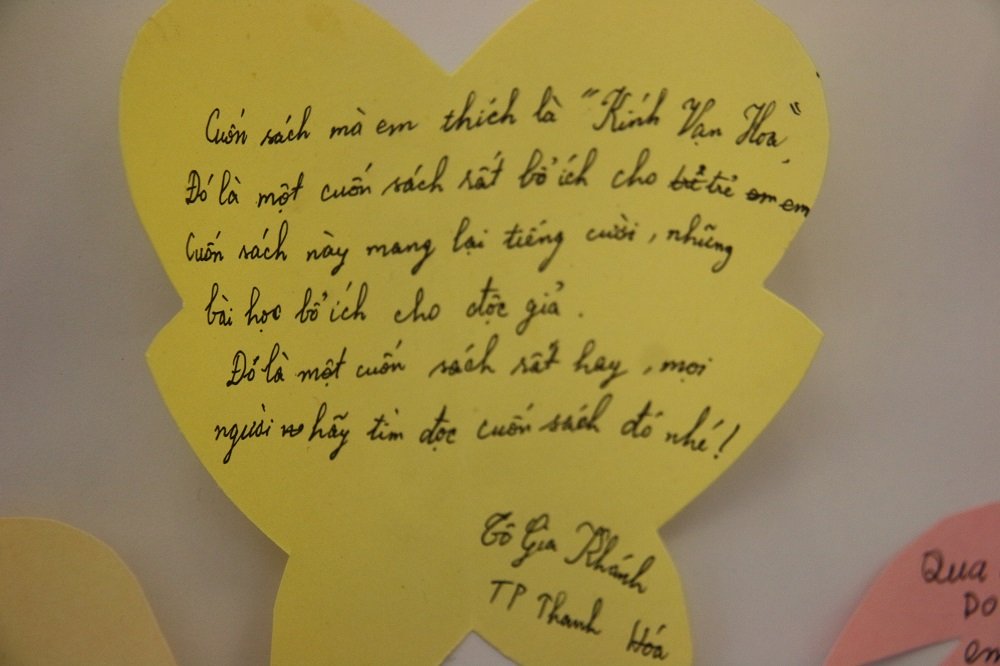 Cuốn sách mà em thích là "Kính Vạn Hoa",
Đó là một cuốn sách rất bổ ích cho trẻ em
Cuốn sách này mang lại tiếng cười, những
bài học bổ ích cho độc giả.
Đó là một cuốn sách rất hay, mọi
người hãy tìm đọc cuốn sách đó nhé!
Tô Gia Khánh
TP Thanh Hóa
Qua
Do
em